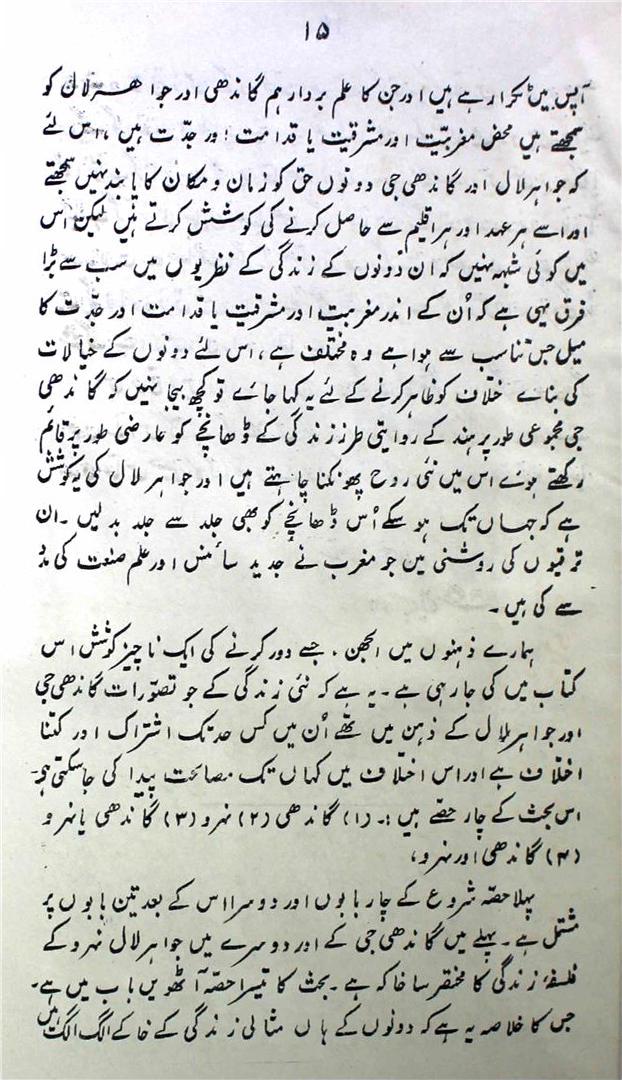 ۱۵
آپس میں ٹکرا رہے ہیں اور جن کا علم بردار ہم گاندھی اور جواہر لال کو
سمجھتے ہیں محض مغربیّت اور مشرقیت یا قدامت اور جدّت ہیں، اس لئے
کہ جواہر لال اور گاندھی جی دونوں حق کو زمان و مکان کا پابند نہیں سمجھتے
اور اسے ہر عہد اور ہر اقلیم سے حاصل کرنے کی کوشش کرتے ہیں لیکن اس
میں کوئی شبہہ نہیں کہ ان دونوں کے زندگی کے نظریوں میں سب سے بڑا
فرق یہی ہے کہ اُن کے اندر مغربیت اور مشرقیت یا قدامت اور جدّت کا
میل جس تناسب سے ہوا ہے وہ مختلف ہے، اس لئے دونوں کے خیالات
کی بناے خلاف کو ظاہر کرنے کے لئے یہ کہا جاے تو کچھ بیجا نہیں کہ گاندھی
جی مجموعی طور پر ہند کے روایتی طرز زندگی کے ڈھانچے کو عارضی طور پر قائم
رکھتے ہوے اس میں نئی روح پھونکنا چاہتے ہیں اور جواہر لال کی یہ کوشش
ہے کہ جہاں تک ہو سکے اُس ڈھانچے کو بھی جلد سے جلد بدلیں۔ ان
ترقیوں کی روشنی میں جو مغرب نے جدید سائنس اور علم صنعت کی مدد
سے کی ہیں۔
ہمارے ذہنوں میں الجھن، جسے دور کرنے کی ایک ناچیز کوشش اس
کتاب میں کی جا رہی ہے۔ یہ ہے کہ نئی زندگی کے جو تصوّرات گاندھی جی
اور جواہر لال کے ذہن میں تھے اُن میں کس حد تک اشتراک اور کتنا
اختلاف ہے اور اس اختلاف میں کہاں تک مصالحت پیدا کی جا سکتی ہے۔
اس بحث کے چار حصے ہیں :۔ (۱) گاندھی (۲) نہرو (۳) گاندھی یا نہرو
(۴) گاندھی اور نہرو،
پہلا حصّہ شروع کے چار بابوں اور دوسرا اس کے بعد تین بابوں پر
مشتمل ہے۔ پہلے میں گاندھی جی کے اور دوسرے میں جواہر لال نہرو کے
فلسفۂ زندگی کا مختصر سا خاکہ ہے۔ بحث کا تیسرا حصّہ آٹھویں باب میں ہے۔
جس کا خلاصہ یہ ہے کہ دونوں کے ہاں مثالی زندگی کے خاکے الگ الگ ہیں